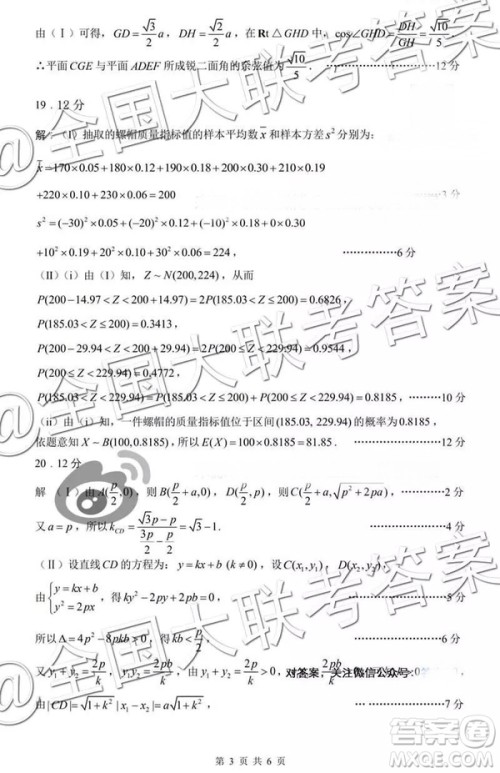 由（Ⅰ）可得，GD = √3/2 a，DH = √2/2 a，在Rt△GHD中，cos∠GHD = DH/GH = √10/5
∴平面CGE与平面ADEF所成锐二面角的余弦值为 √10/5．…………12分
19．12分
解：（Ⅰ）抽取的螺帽质量指标值的样本平均数 x̄ 和样本方差 s² 分别为：
x̄ = 170×0.05+180×0.12+190×0.18+200×0.30+210×0.19
+220×0.10+230×0.06 = 200 …………3分
s² = (−30)²×0.05+(−20)²×0.12+(−10)²×0.18+0×0.30
+10²×0.19+20²×0.10+30²×0.06 = 224，…………6分
（II）（i）由（I）知，Z ~ N(200,224)，从而
P(200−14.97<Z<200+14.97) = 2P(185.03<Z≤200) = 0.6826，
P(185.03<Z≤200) = 0.3413，
P(200−29.94<Z<200+29.94) = 2P(200≤Z≤229.94) = 0.9544，
P(200≤Z≤229.94) = 0.4772，
P(185.03<Z<229.94) = 0.3413+0.4772 = 0.8185，…………10分
（ii）由（i）知，一件螺帽的质量指标值位于区间(185.03, 229.94)的概率为0.8185，
依题意知 X ~ B(100,0.8185)，所以 E(X) = 100×0.8185 = 81.85．…………12分
20．12分
解 （Ⅰ）由A(p/2,0)，则B(p/2+a,0)，D(p/2,p)，则C(p/2+a,√(p²+2pa)) …………2分
又a = p，所以k_CD = (√3p−p)/(3p/2−p/2) = √3−1. …………4分
（Ⅱ）设直线CD的方程为：y = kx+b (k≠0)，设C(x₁,y₁)，D(x₂,y₂)，
由{y=kx+b y²=2px，得ky²−2py+2pb = 0 …………5分
所以Δ = 4p²−8pkb>0，得kb<p/2，…………6分
又y₁+y₂ = 2p/k，y₁y₂ = 2pb/k，由y₁+y₂ = 2p/k>0，y₁y₂ = 2pb/k 对答案，关注微信公众号:
由|CD| = √(1+k²)|x₁−x₂| = a√(1+k²)，…………7分
第 3 页 共 6 页
@全国大联考答案
@全国大联考答案